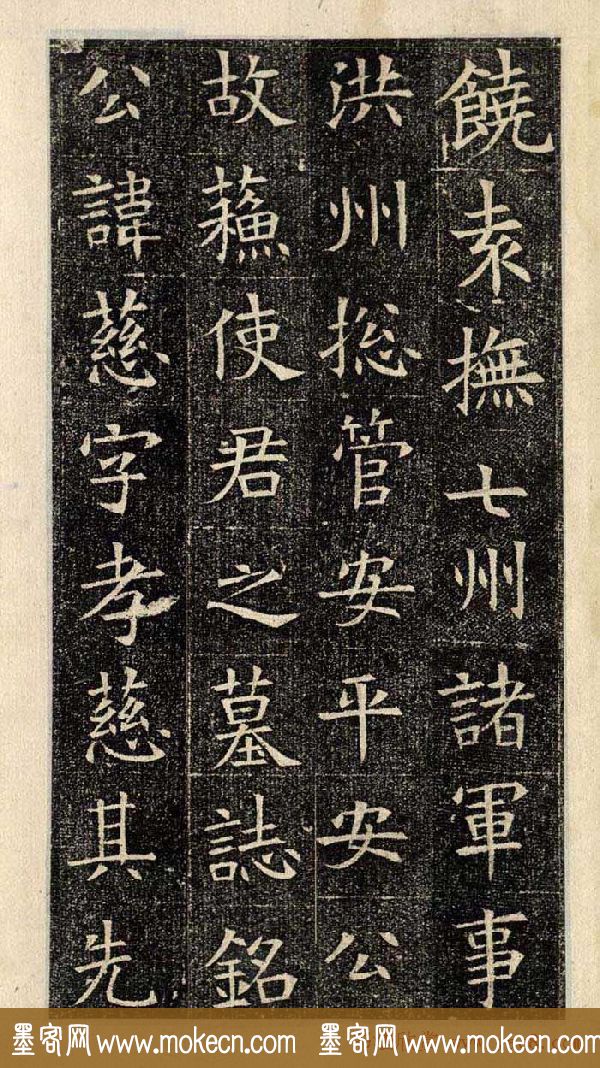 饒袁撫七州諸軍事
洪州捴管安平安公
故蘓使君之墓誌銘
公諱慈字孝慈其先
墨客网 www.mokecn.com 墨客网 www.mokecn.com